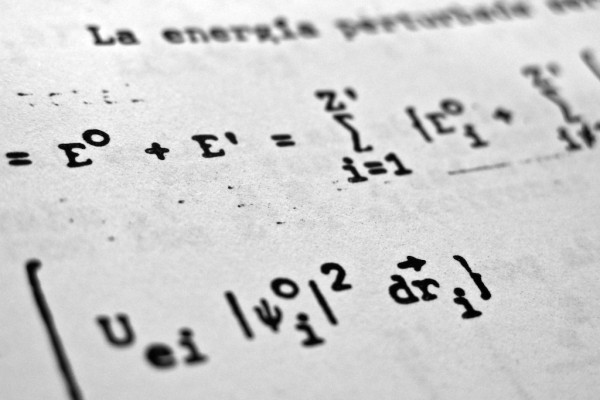 La energía perturbada
= E⁰ + E' = Σ Z' i=1 {E⁰i + Σ Z' i≠
∫ Uei |ψ⁰i|² dr⃗i}